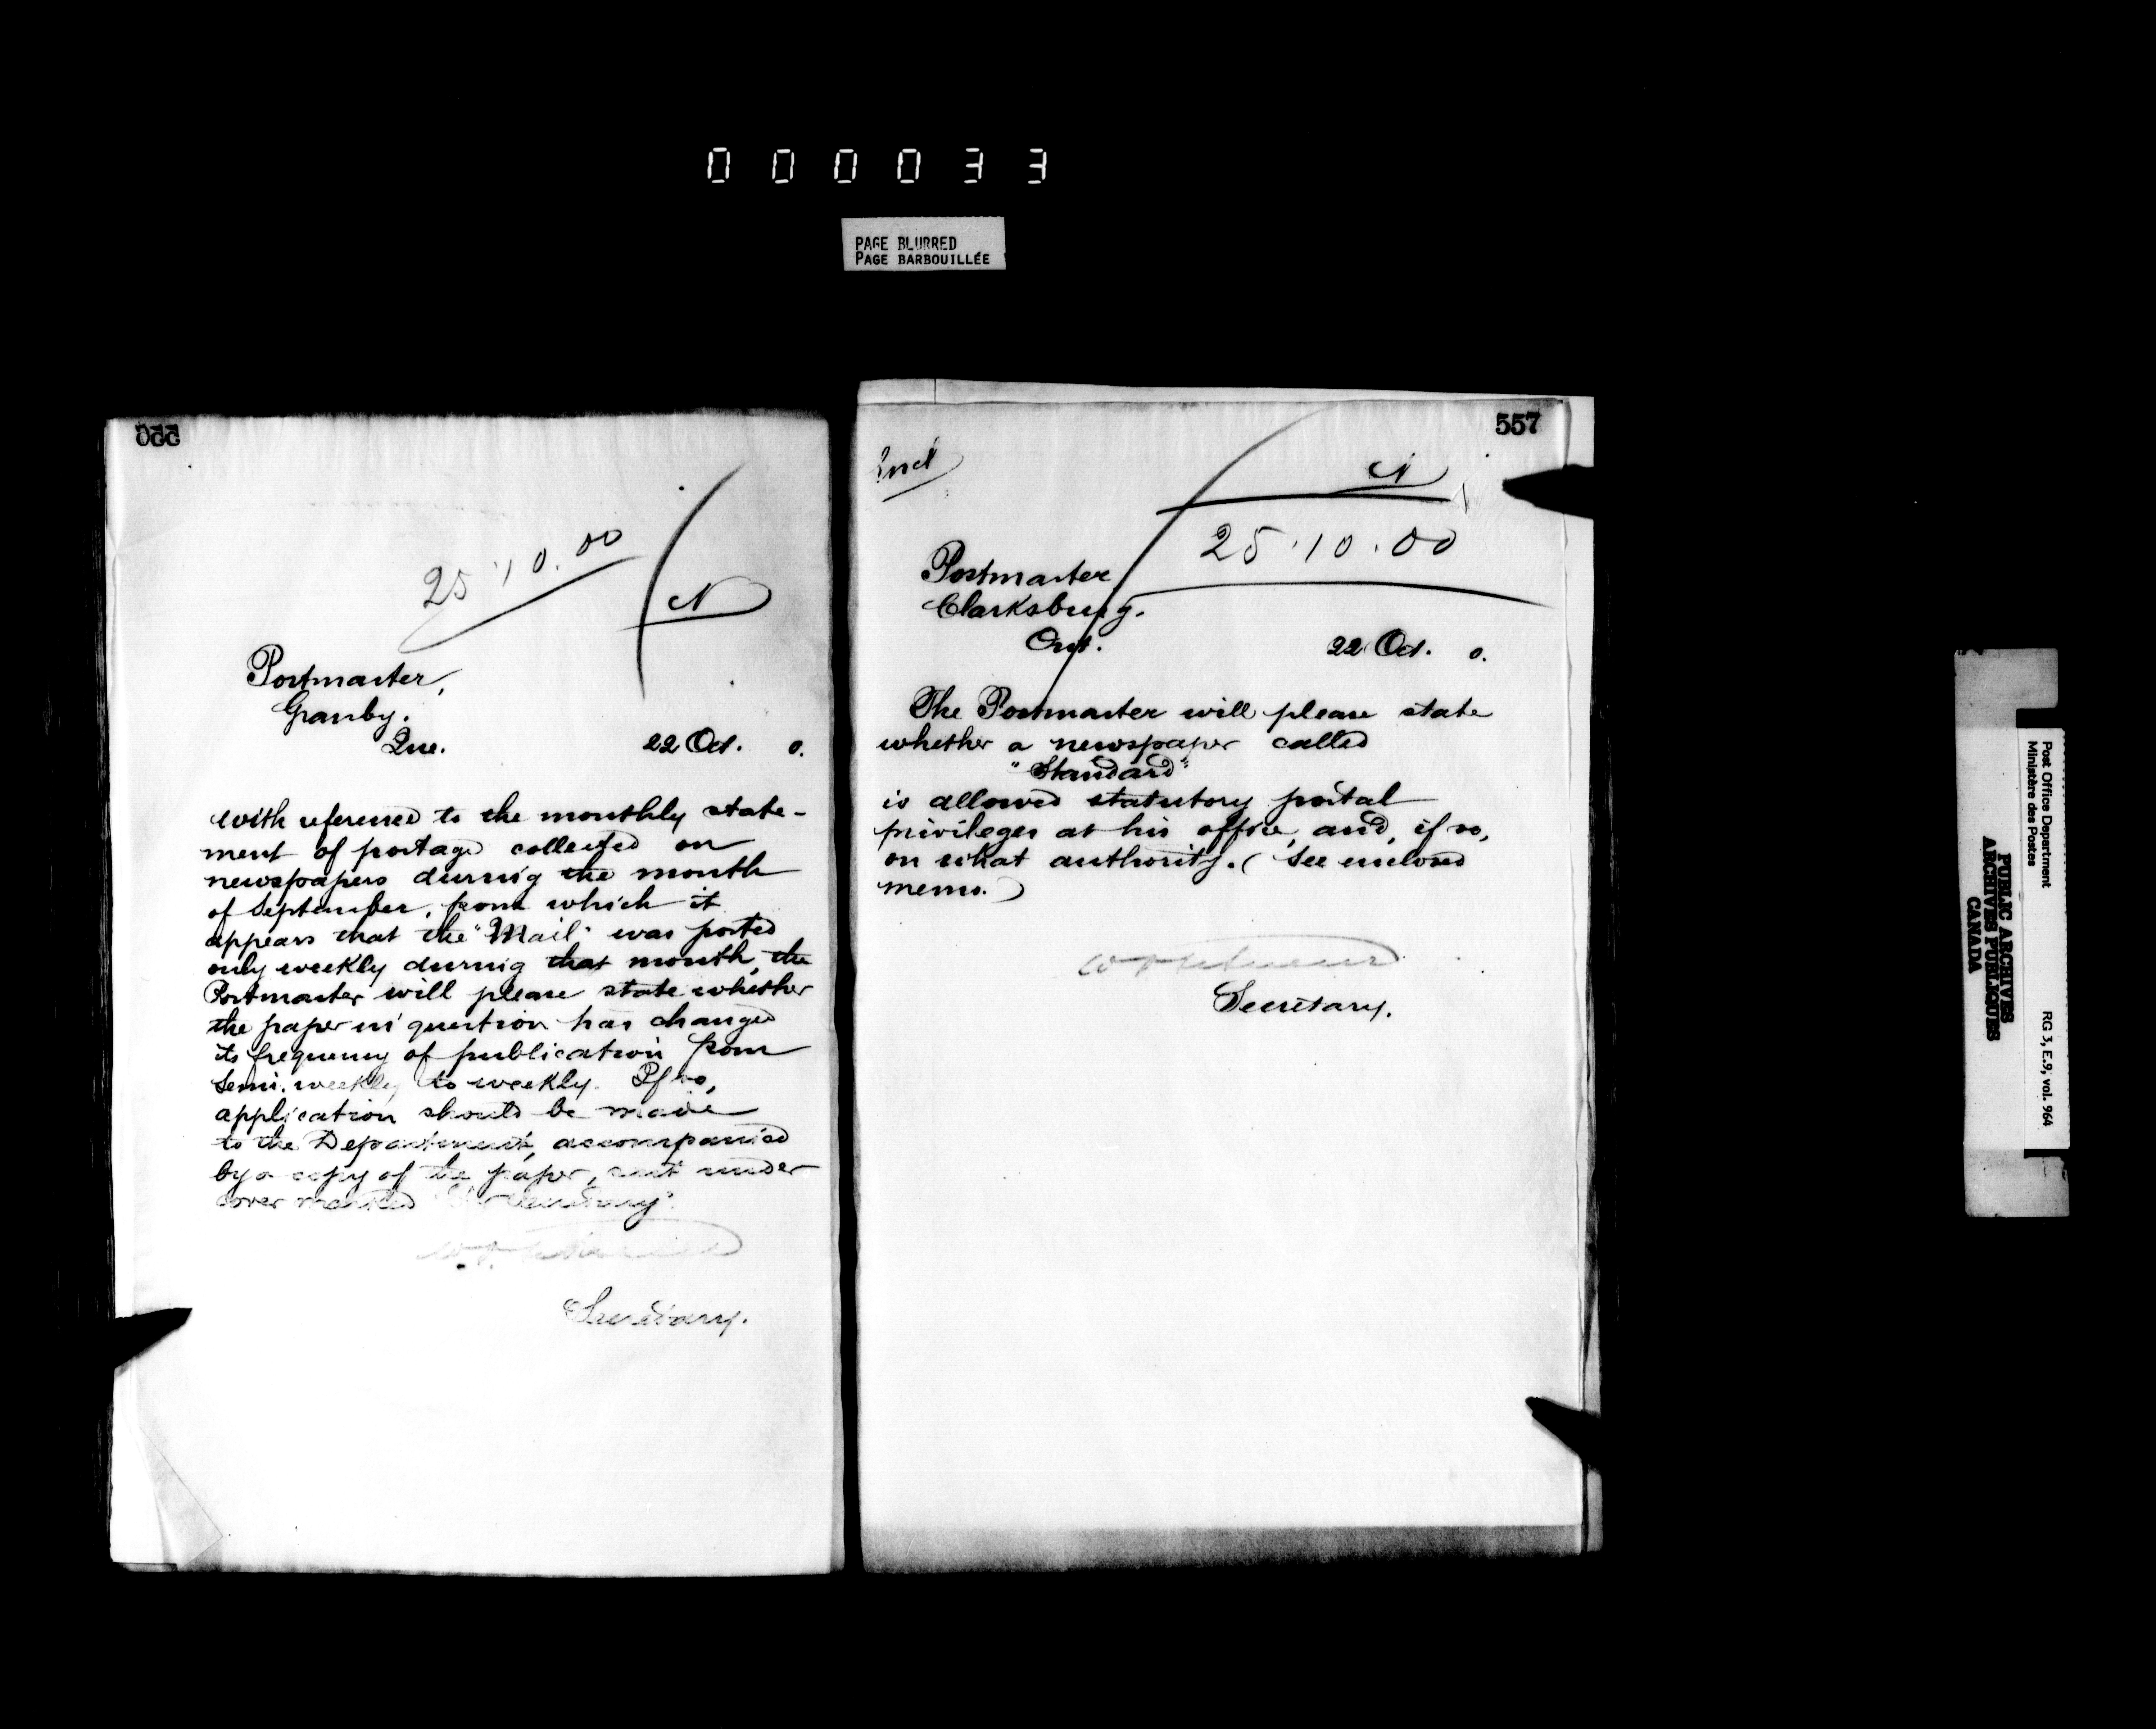 000033
PAGE BLURRED
PAGE BARBOUILLÉE
25.10.00
N
Postmaster,
Granby.
Que.
22 Oct. 0.
With reference to the monthly state-
ment of postage collected on
newspapers during the month
of September, from which it
appears that the "Mail" was posted
only weekly during that month, the
Postmaster will please state whether
the paper in question has changed
its frequency of publication from
Semi-weekly to weekly. If so,
application should be made
to the Department, accompanied
by a copy of the paper, sent under
cover marked "Secretary".
Secretary.
557
Encl
N
25.10.00
Postmaster
Clarksburg.
Ont.
22 Oct. 0.
The Postmaster will please state
whether a newspaper called
"Standard"
is allowed statutory postal
privileges at his office, and, if so,
on what authority. (See enclosed
memo.)
Secretary.
Post Office Department
Ministère des Postes
RG 3, E.9, vol. 964
PUBLIC ARCHIVES
ARCHIVES PUBLIQUES
CANADA